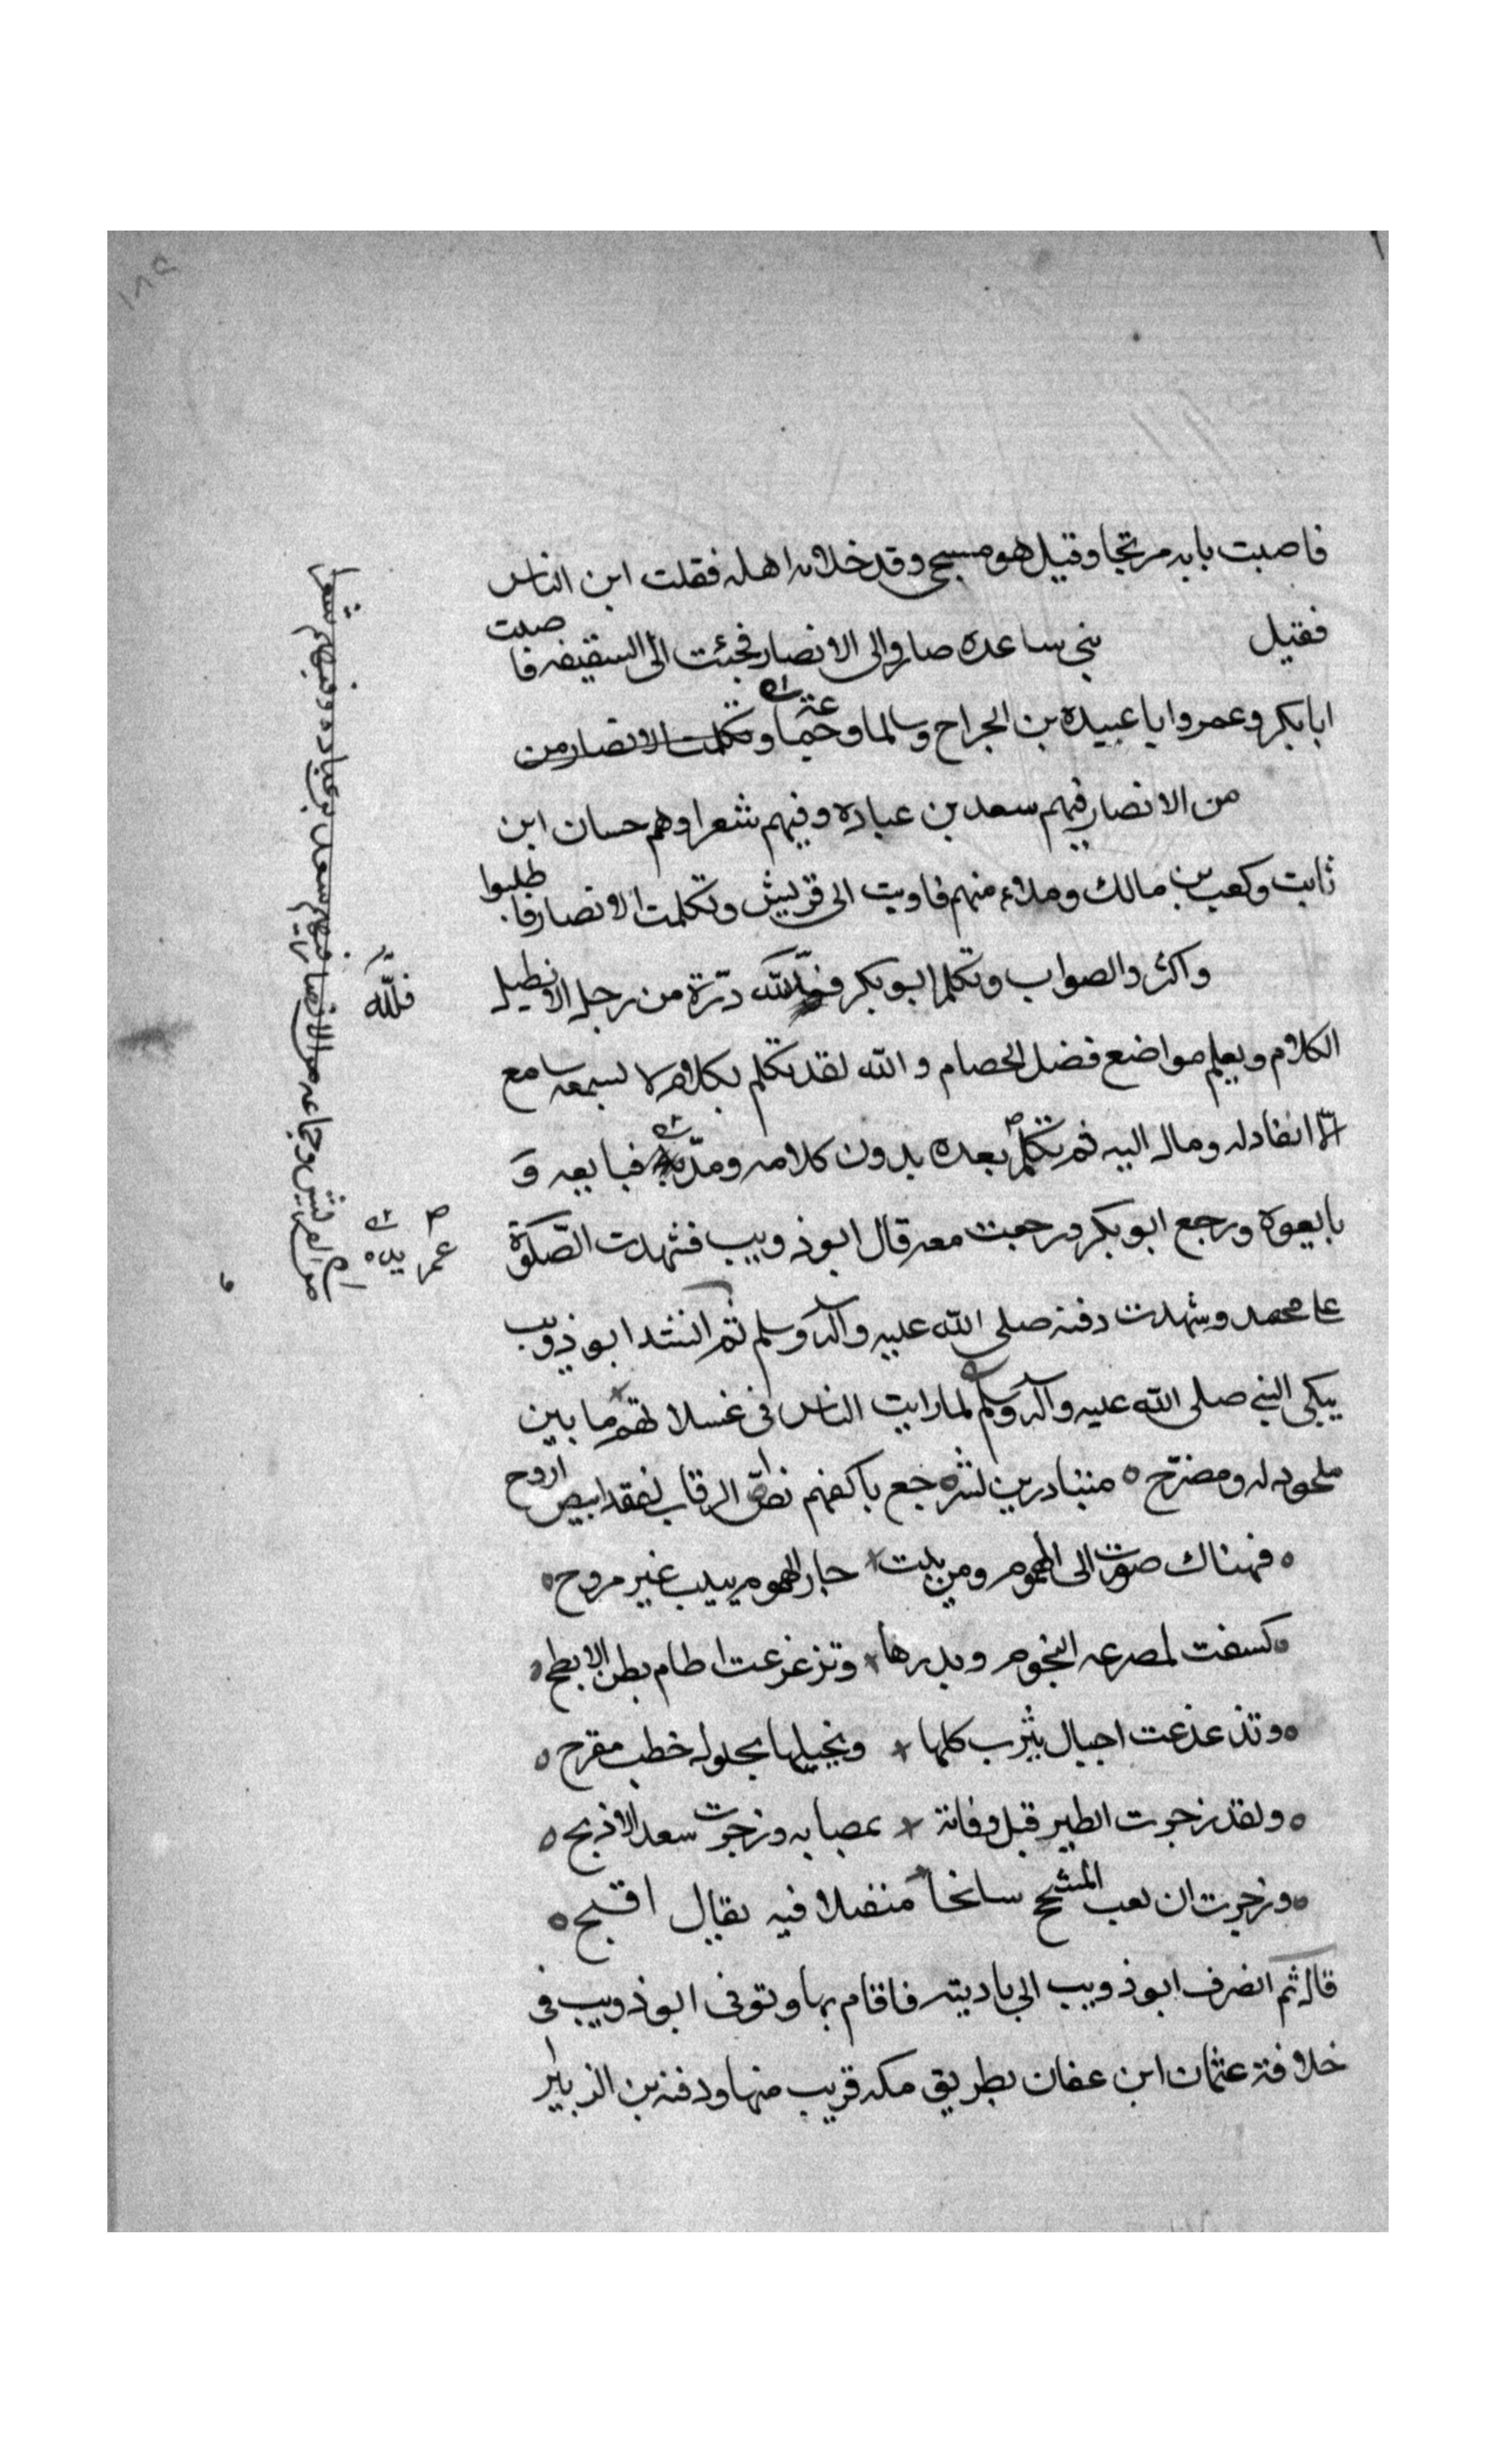 فاصبت بابه مرتجا وقيل هو مسجى وقد خلا به اهله فقلت اين الناس
فقيل بني ساعده صاروا الى الانصار فجئت الى السقيفه فاصبت
ابابكر وعمر وابا عبيدة بن الجراح وسالما وتكلمت الانصار من
من الانصار فيهم سعد بن عباده وفيهم شعرا وهم حسان ابن
ثابت وكعب بن مالك وملاء منهم فاويت الى قريش وتكلمت الانصار فاطلبوا
واكثروا الصواب وتكلم ابو بكر درّة من رجل لا يطيل
الكلام ويعلم مواضع فضل الخصام والله لقد تكلم بكلام لا يسمعه سامع
الّا انقاد له ومال اليه ثم تكلم بعده بدون كلامه ومدّ فبايعه و
بايعوه ورجع ابو بكر ورجعت معه قال ابو ذويب فشهدت الصّلوة
على محمد وشهدت دفنه صلى الله عليه وآله وسلم ثم انشد ابو ذويب
يبكى النبي صلى الله عليه وآله وسلم لما رايت الناس في غسلاتهم ما بين
ملحود له ومضرّح ه متبادرين لشرجع باكفهم نصّ الرقاب لفقد ابيض اروح
ه فهناك صرت الى الهموم ومن يبت × جار الهموم يبيت غير مروح ه
ه كسفت لمصرعه النجوم وبدرها × وتزعزعت اطام بطن الابطح ه
ه وتذعذعت اجبال يثرب كلها × ونخيلها بحلول خطب مفرح ه
ه ولقد زجرت الطير قبل وفاته × بمصابه وزجرت سعد الاذبح ه
ه وزجرت ان نعب المشحج سانحا متفلا فيه بفال اقبح ه
قال ثم انصرف ابو ذويب الى باديته فاقام بها وتوفى ابو ذويب فى
خلافة عثمان ابن عفان بطريق مكه قريب منها ودفنه بن الزبير
فللّه
عمر يده